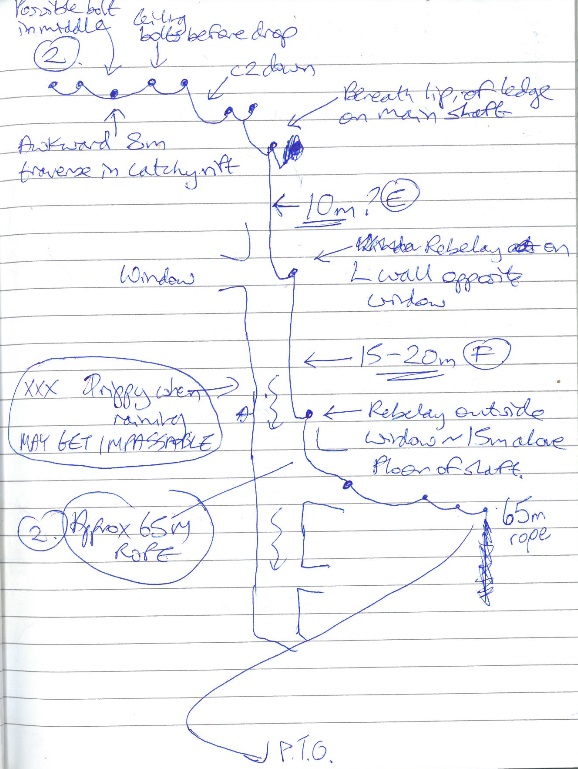 Possible bolt
in middle
Ceiling
bolts before drop
2.
c2 down
Beneath lip of ledge
on main shaft
Awkward 8m
traverse in catchy rift
10m? E
Rebelay on
L wall opposite
window
Window
15-20m F
XXX Drippy when
raining
MAY GET IMPASSABLE
Rebelay outside
window ~15m above
floor of shaft.
2. Approx 65m
ROPE
65m
rope
P.T.O.